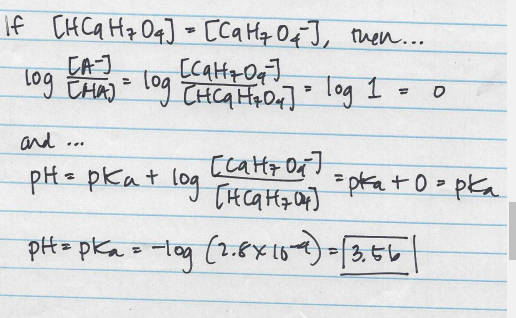 If [HC9H7O4] = [C9H7O4-], then...
log [A-]/[HA] = log [C9H7O4-]/[HC9H7O4] = log 1 = 0
and ...
pH = pKa + log [C9H7O4-]/[HC9H7O4] = pKa + 0 = pKa
pH = pKa = -log (2.8 x 10-4) = 3.56